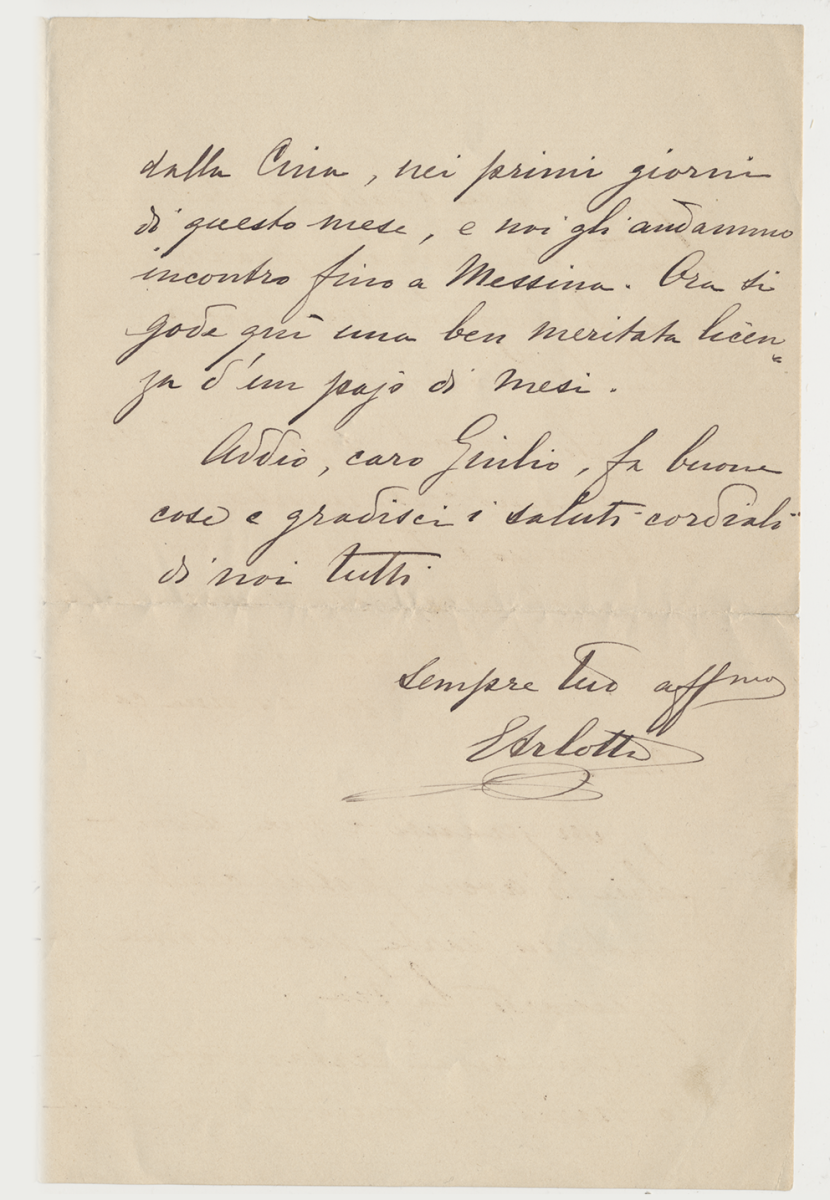 dalla Cina, nei primi giorni
di questo mese, e noi gli andammo
incontro fino a Messina. Ora si
gode quì una ben meritata licen=
za d'un pajo di mesi.
Addio, caro Giulio, fa buone
cose e gradisci i saluti cordiali
di noi tutti
Sempre tuo affmo
EArlotta